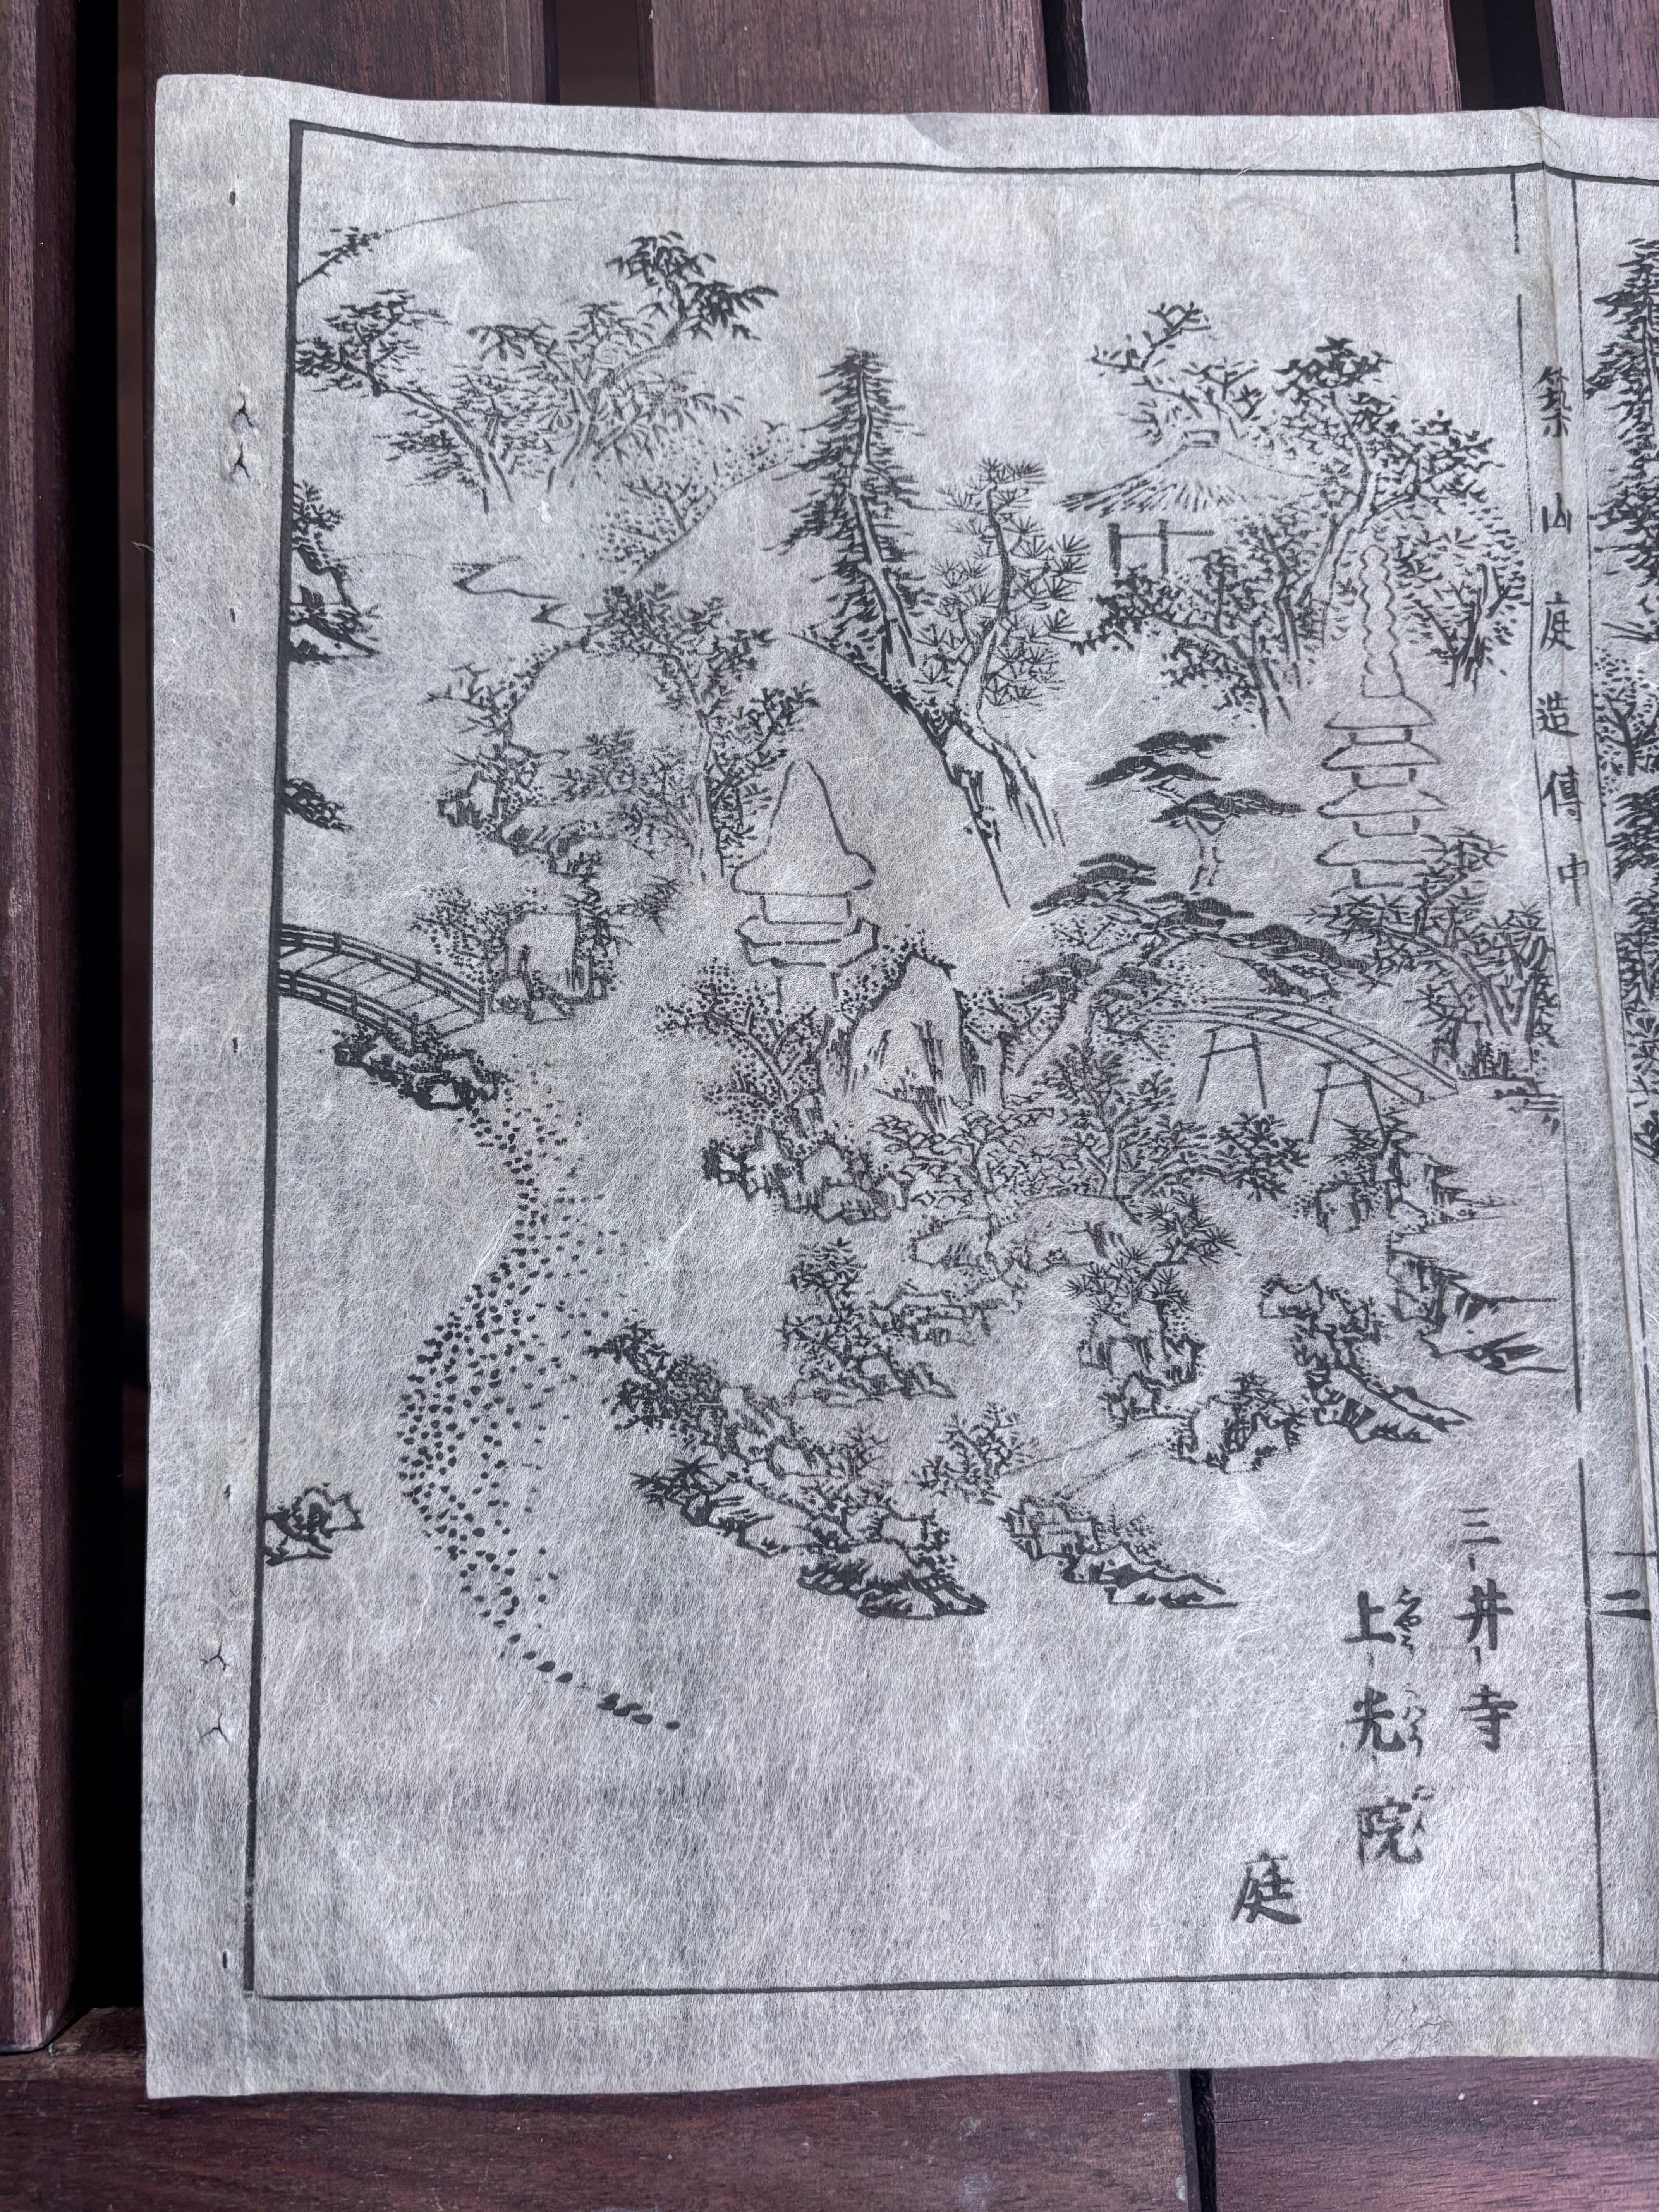 築山庭造傳中
二
三井寺
上光院
庭